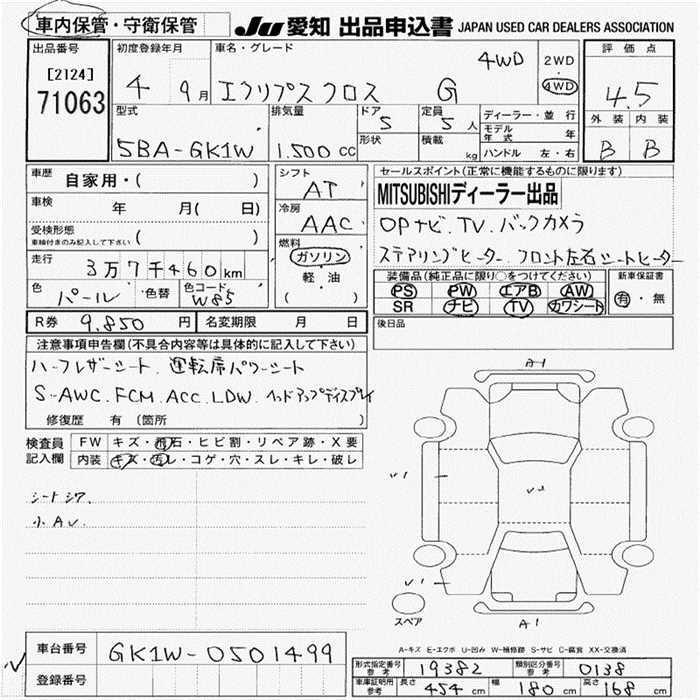 車内保管・守衛保管 JU 愛知 出品申込書 JAPAN USED CAR DEALERS ASSOCIATION
出品番号 初度登録年月 車名・グレード 評価点
[2124] 4 9月 エクリプスクロス G 4WD 2WD 4WD 4.5
71063
型式 排気量 ドア 定員 ディーラー・並行 外装 内装
5BA-GK1W 1.500cc 5 5人 モデル年式 年 B B
形状 積載 kg ハンドル 左・右
車歴 自家用・( ) シフト AT セールスポイント(正常に機能するものに限ります)
MITSUBISHIディーラー出品
車検 年 月(日) 冷房 AAC OPナビ.TV.バックカメラ
受検形態 車検付きのみ記入して下さい ( ) 燃料 ステアリングヒーター.フロント左右シートヒーター
走行 3万7千460km ガソリン 装備品(純正品に限り○をつけてください) 新車保証書
軽・油 PS PW エアB AW 有・無
色 パール 色替 色コード W85 ( ) SR ナビ TV カワシート
R券 9.850円 名変期限 月 日 後日品
注意事項申告欄(不具合内容等は具体的に記入して下さい)
ハーフレザーシート.運転席パワーシート
S-AWC.FCM.ACC.LDW.ヘッドアップディスプレイ
修復歴 有 (箇所 )
検査員記入欄 FW キズ・飛石・ヒビ割・リペア跡・X要
内装 キズ・汚レ・コゲ・穴・スレ・キレ・破レ
シートシワ.
小AU.
A1
U1
U1
A1
スペア
A-キズ E-エクボ U-凹み W-補修跡 S-サビ C-腐食 XX-交換済
車台番号 GK1W-0501499
登録番号
形式指定番号 参考 19382 類別区分番号 参考 0138
車庫証明用 参考 長さ 454cm 幅 180cm 高さ 168cm